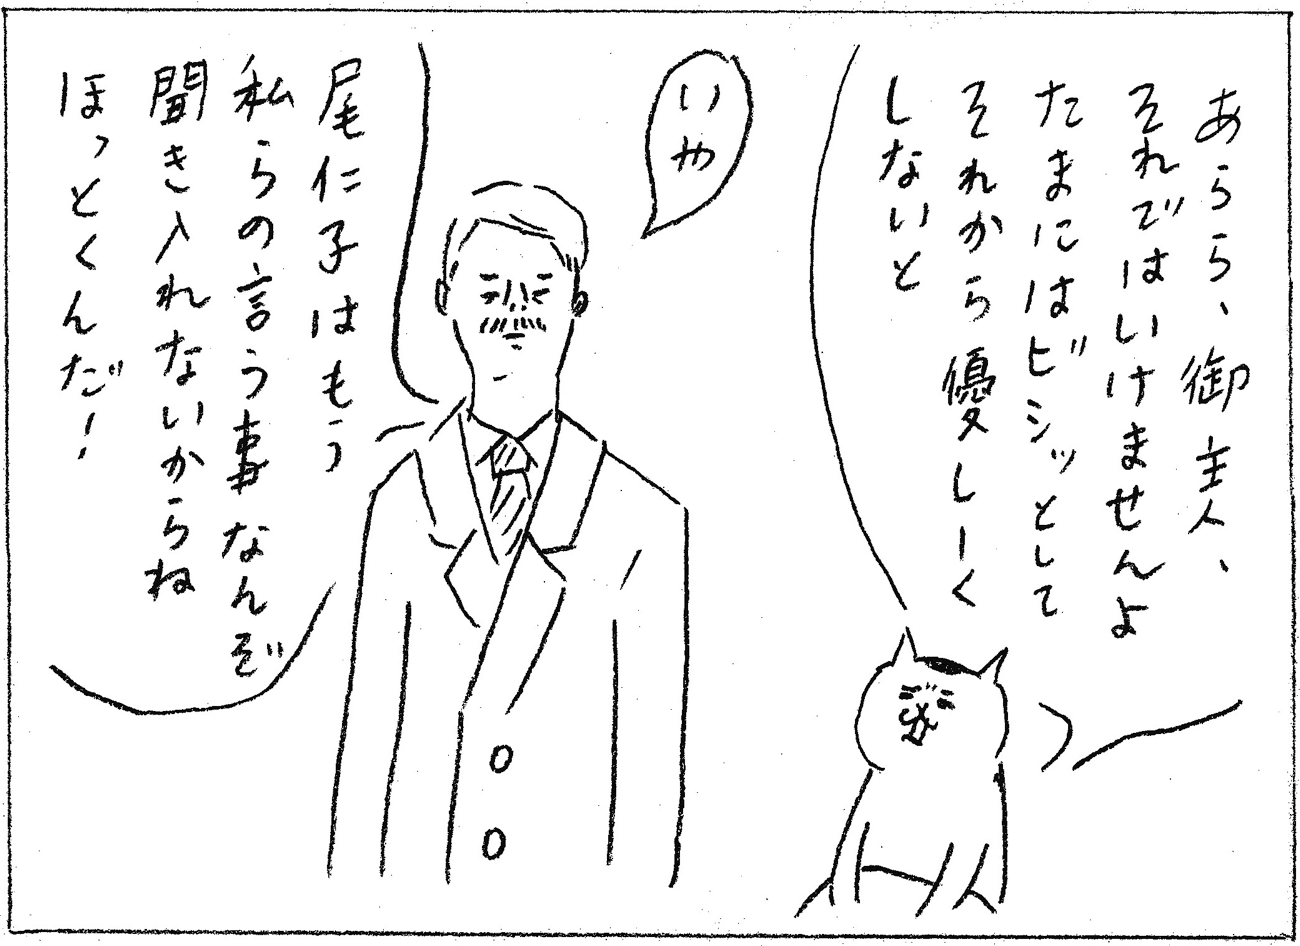 あららら、御主人、
それではいけませんよ
たまにはビシッとして
それから優しーく
しないと
いや
尾仁子はもう
私らの言う事なんぞ
聞き入れないからね
ほっとくんだ!